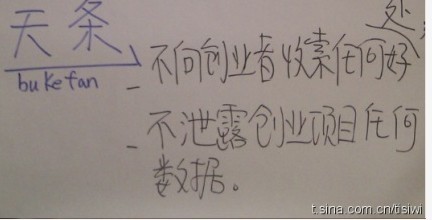 天条
bukefan
- 不向创业者收索任何好处
- 不泄露创业项目任何
数据。
t.sina.com.cn/tisiwi